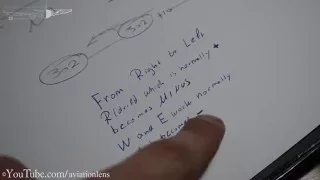 302
302
From Right to Left
R(Arid which is normally +
becomes Minus
W and E work normally
becomes
©YouTube.com/aviationlens